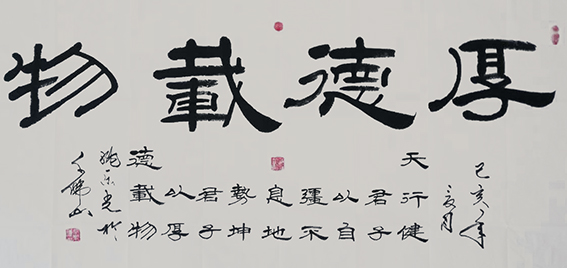 厚德載物
己亥年
夏月
天行健
君子
以自
彊不
息地
勢坤
君子
以厚
德載物
於
千佛山